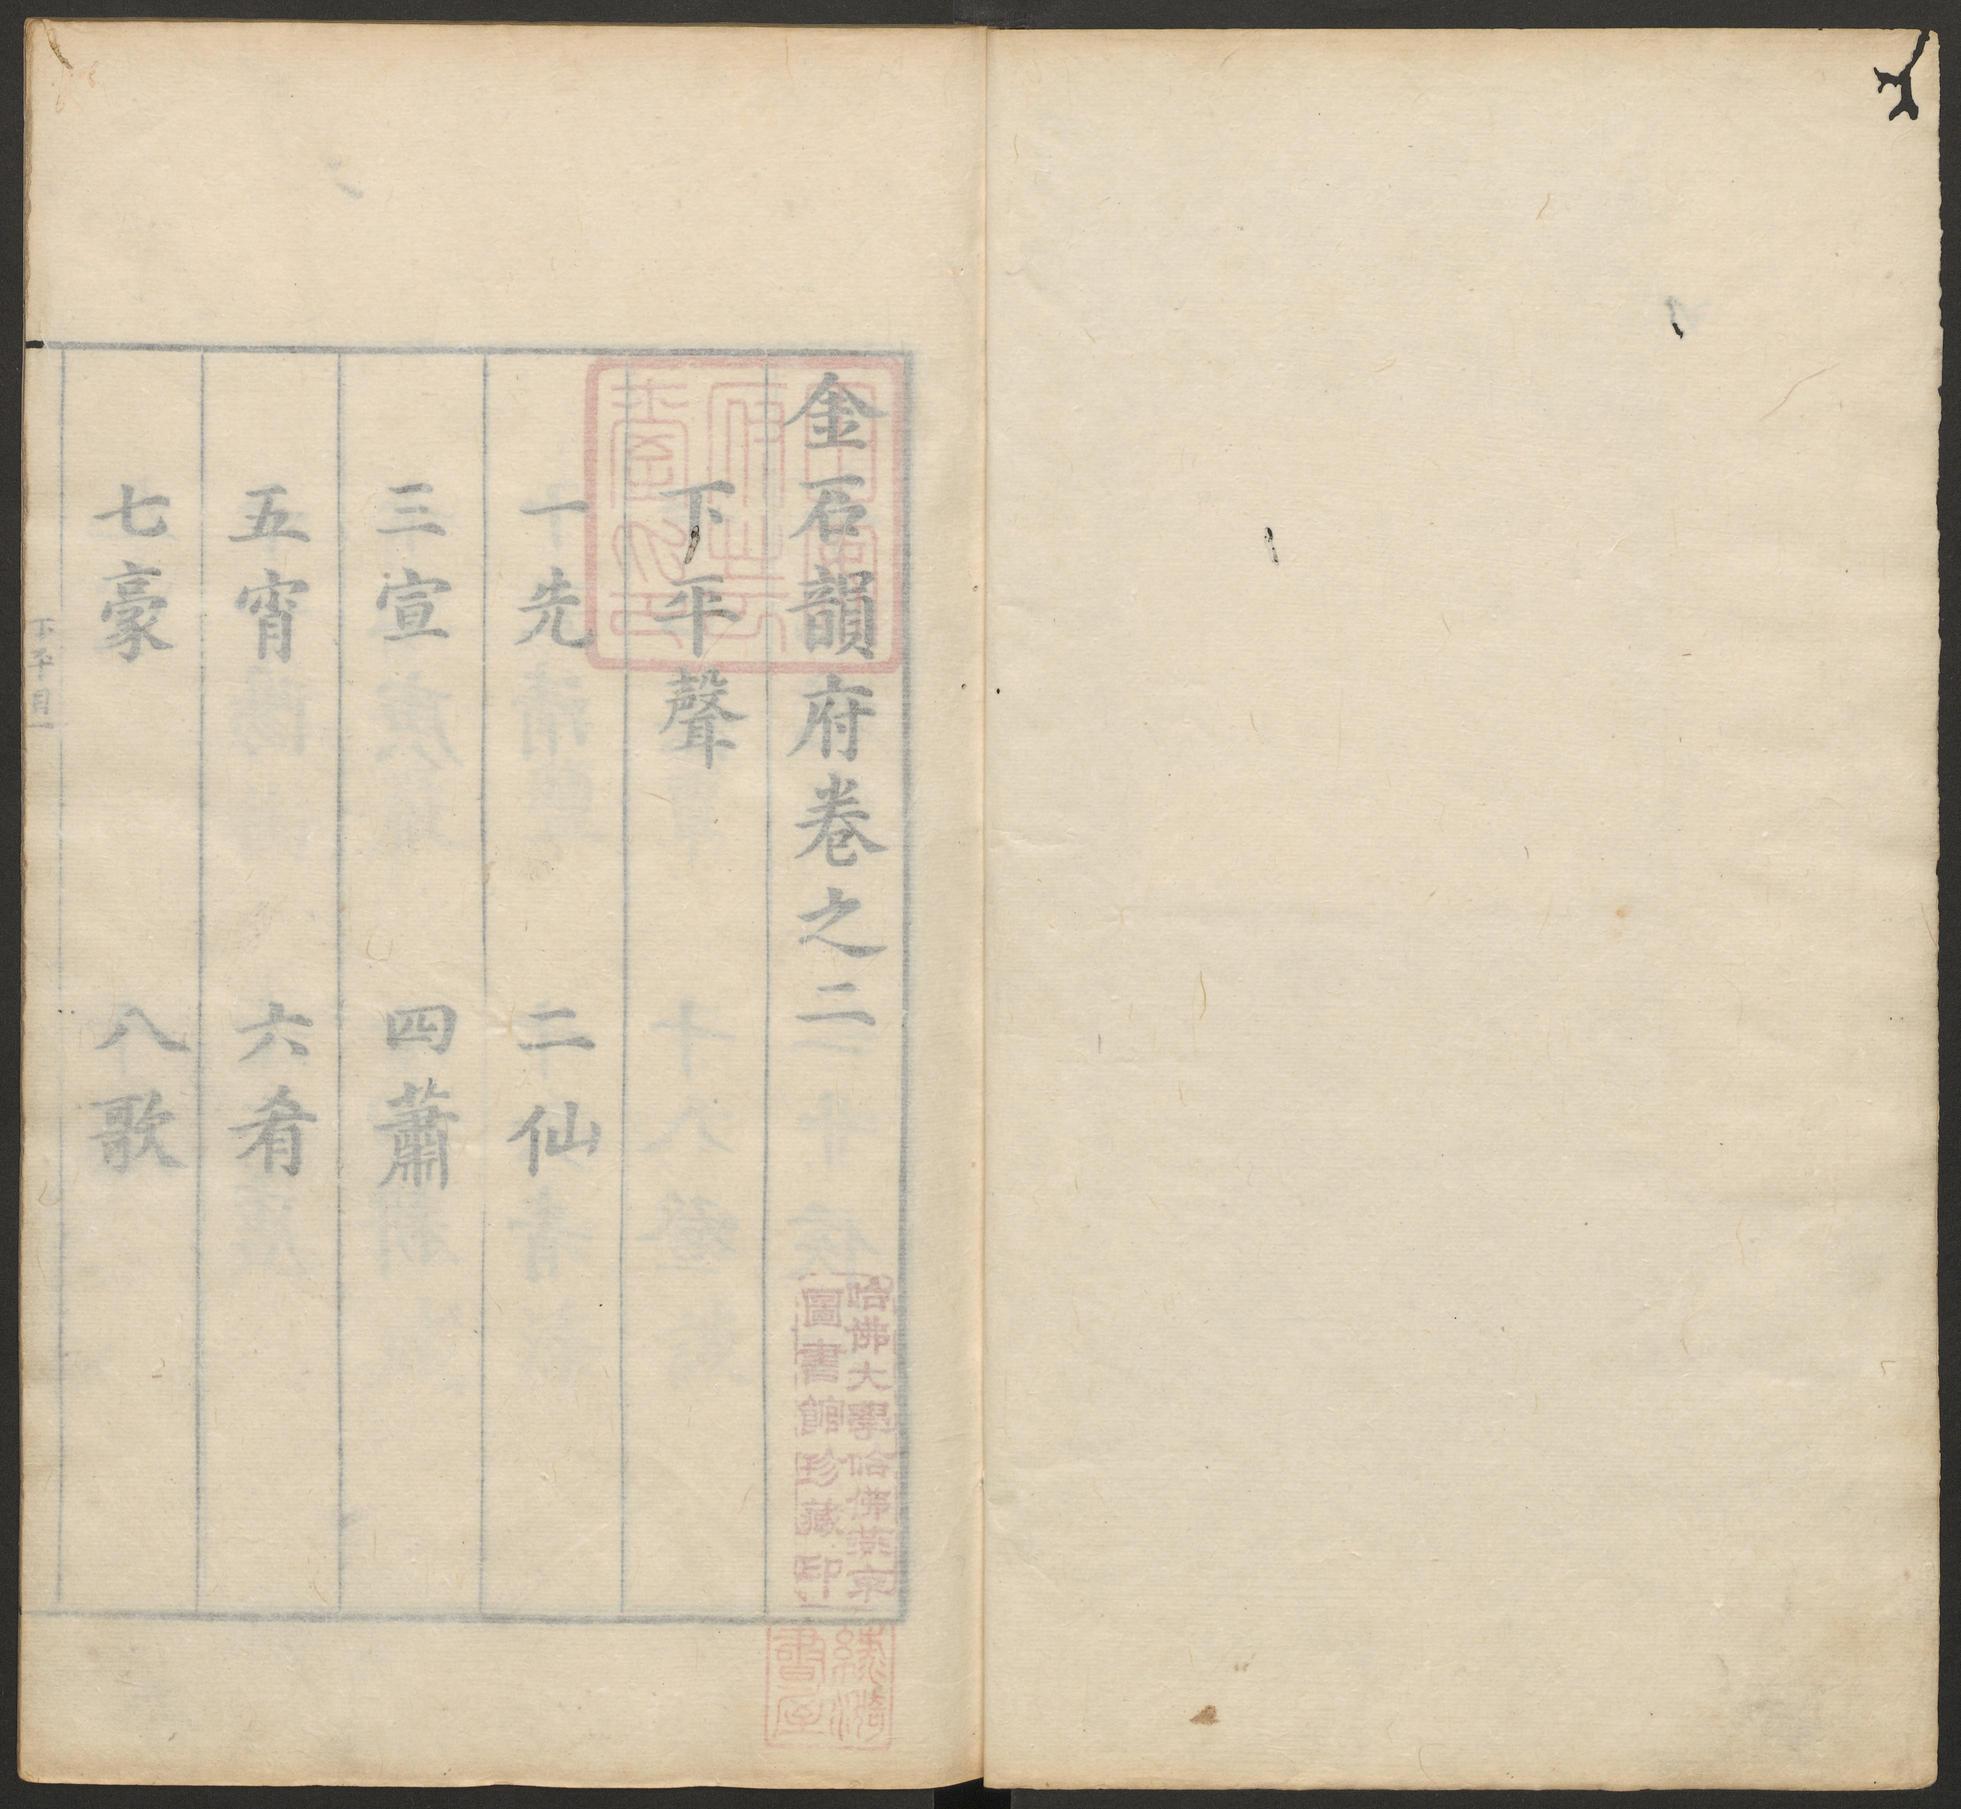 金石韻府卷之二
下平聲
一先 二仙
三宣 四蕭
五宵 六肴
七豪 八歌
下平目一
哈佛大學哈佛燕京
圖書館珍藏印